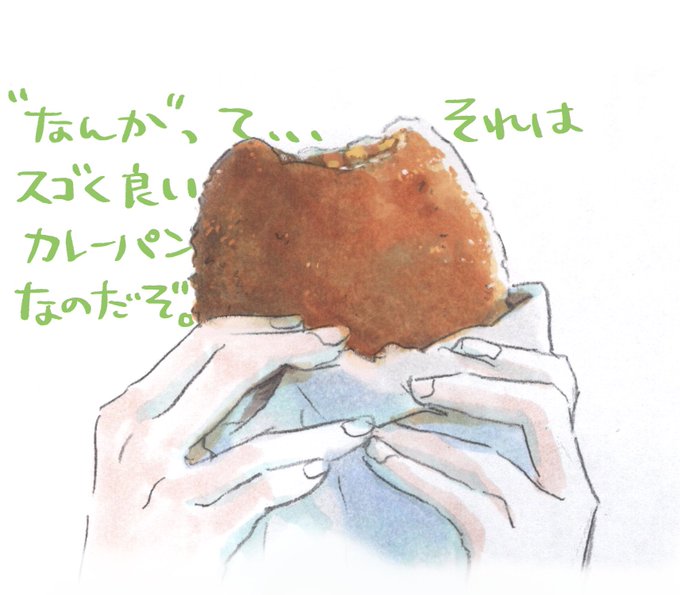 "なんか"って、、、 それは
スゴく良い
カレーパン
なのだぞ。